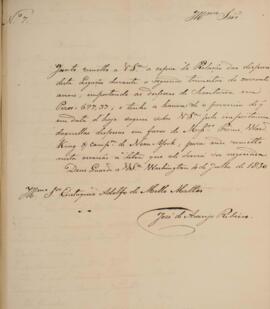 N.º 7.
Ill.mo Snr.
Junto remetto a V.S.ª a copia da Relação das despezas
desta Legação durante o segundo trimestre do corrente
anno; importando as despezas de Secretaria em
Pezos. 697,33, e tenho a honra de o prevenir q.
em data d'hoje saquei sobre V.S.ª pela importancia
daquellas despezas em favor de Mess.rs Prime Ward
King & comp.ª de New-York, para
Deos Guarde a V.S.ª Washington 4 de Julho de 1830
Ill.mo S.r Eustaquio Adolfo de Mello Mattos
José d'Araujo Ribeiro